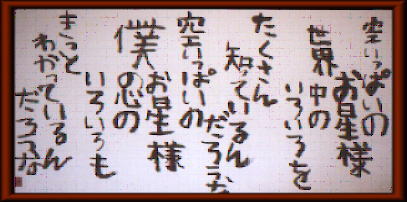 空いっぱいの
お星様
世界中の
いろいろを
たくさん
知っているん
だろうな
空いっぱいの
お星様
僕の心の
いろいろも
きっと
わかっているん
だろうな